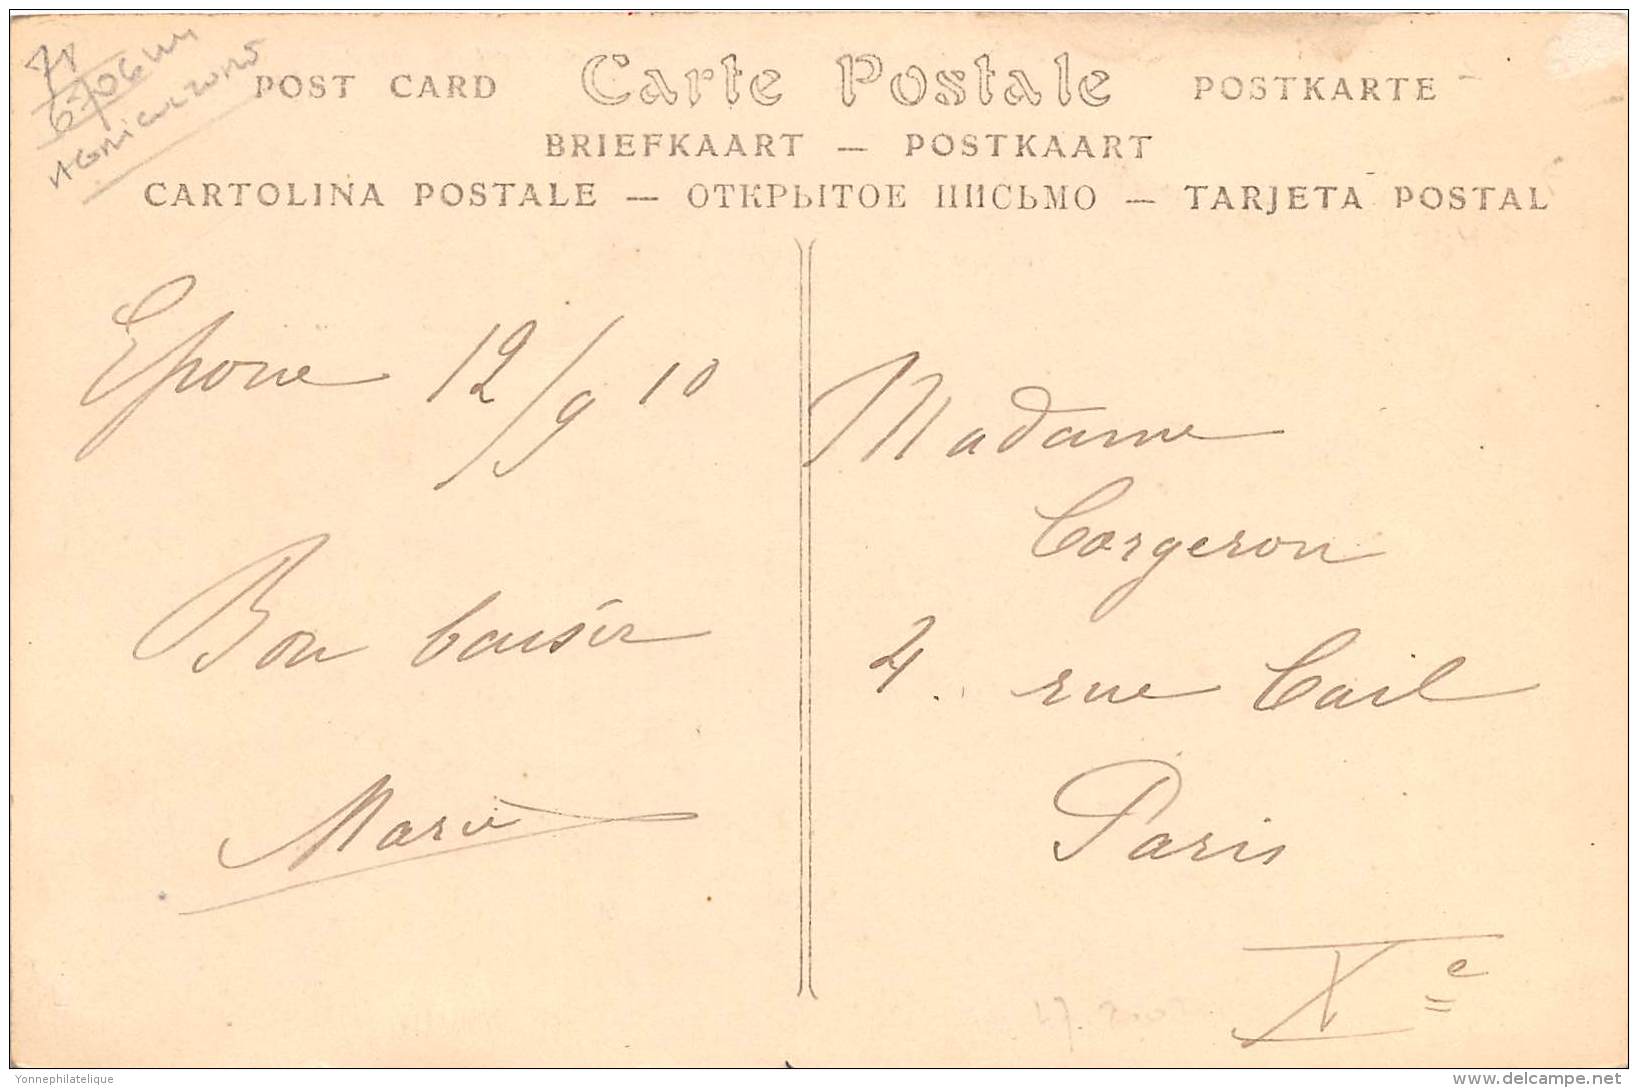 71
AGRICULTEURS
POST CARD Carte Postale POSTKARTE
BRIEFKAART — POSTKAART
CARTOLINA POSTALE — ОТКРЫТОЕ ПИСЬМО — TARJETA POSTAL
Epone 12/9 10
Bon baiser
Marie
Madame
Corgeron
4. rue Cail
Paris
Xe
Yonnephilatelique
www.delcampe.net